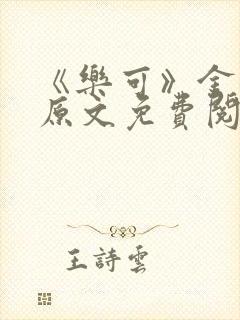 《樂可》全
原文免費閱
王詩雲